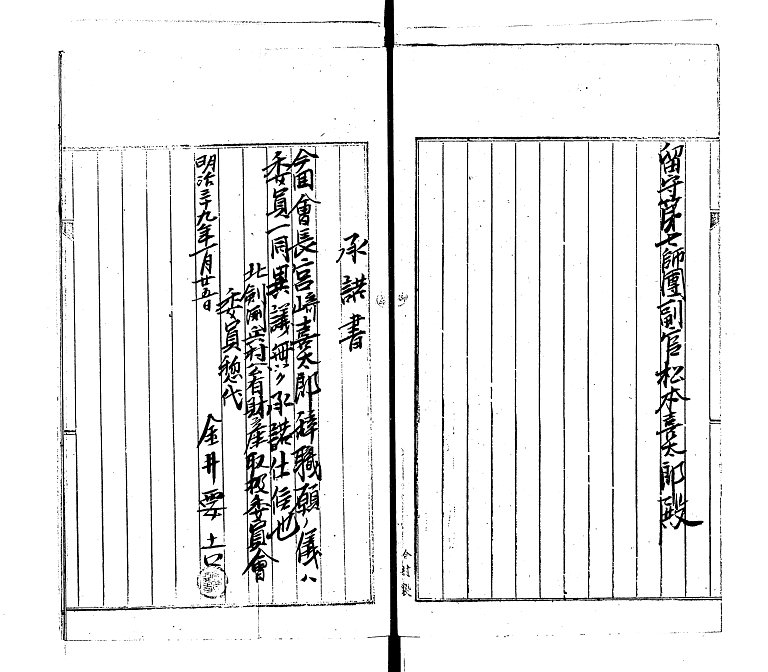 留守第七師團副官松本喜太郎殿
承諾書
今回會長宮崎喜太郎辞職願ノ儀ハ
委員一同異議無ク承諾仕候也
北劍淵兵村公有財産取扱委員會
委員惣代
金井要吉
明治三十九年一月廿五日